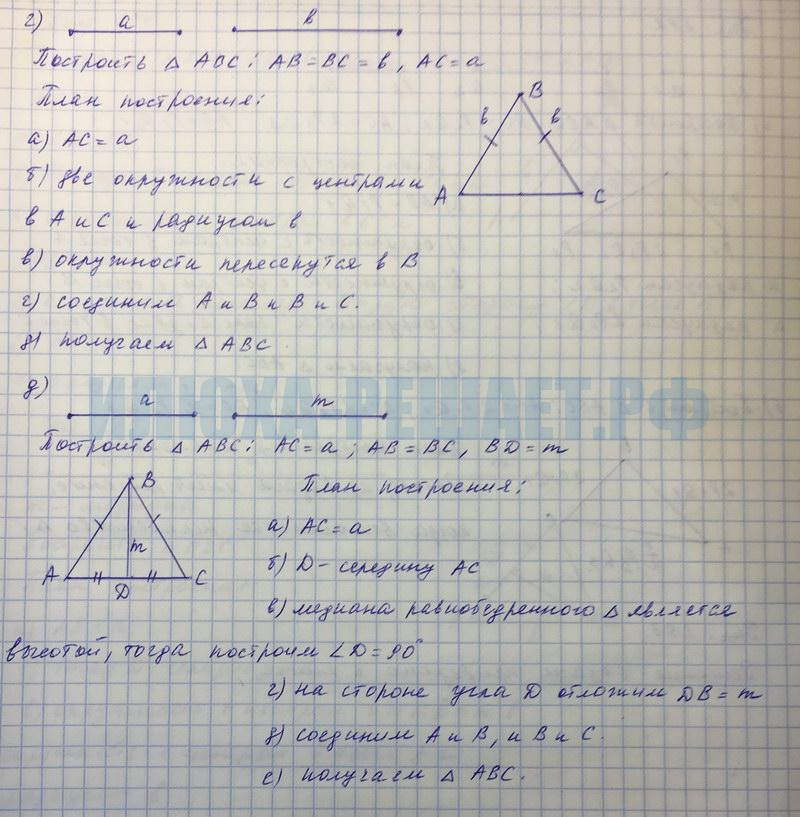 г) a в
Построить △ ABC: AB = BC = в, AC = a
План построения:
а) AC = a
б) две окружности с центрами
в A и C и радиусом в
в) окружности пересекутся в B
г) соединим A и B и B и C.
д) получаем △ ABC
B
в в
A C
д) a m
ИЛЮХА-РЕШАЕТ.РФ
Построить △ ABC: AC = a; AB = BC, BD = m
B
m
A D C
План построения:
а) AC = a
б) D - середину AC
в) медиана равнобедренного △ является
высотой, тогда построим ∠D = 90°
г) на стороне угла D отложим DB = m
д) соединим A и B, и B и C.
е) получаем △ ABC.